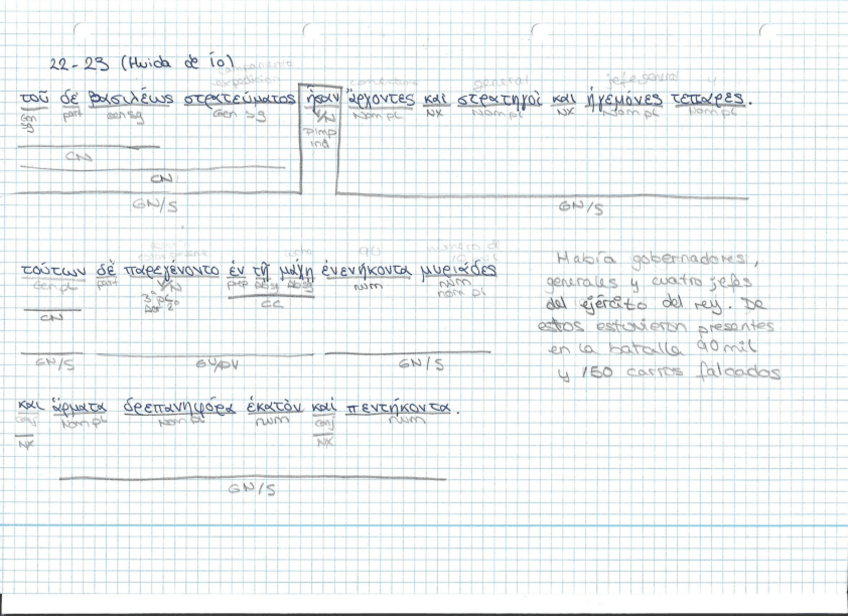 22-23 (Huida de Ío)
expedición
general jefe general
τοῦ δὲ βασιλέως στρατεύματος ἦσαν ἄρχοντες καὶ στρατηγοὶ καὶ ἡγεμόνες τέτταρες.
Gen sg part Gen sg Gen sg VN pimp ind Nom pl NX Nom pl NX Nom pl Nom pl
CN
CN
GN/S GN/S
90
τούτων δὲ παρεγένοντο ἐν τῇ μάχῃ ἐνενήκοντα μυριάδες
Gen pl part VN 3ª pl prep num num nom pl
CN CC
GN/S GV/PV GN/S
Había gobernadores,
generales y cuatro jefes
del ejército del rey. De
estos estuvieron presentes
en la batalla 90 mil
y 150 carros falcados
καὶ ἅρματα δρεπανηφόρα ἑκατὸν καὶ πεντήκοντα.
conj Nom pl Nom pl num conj num
NX NX
GN/S